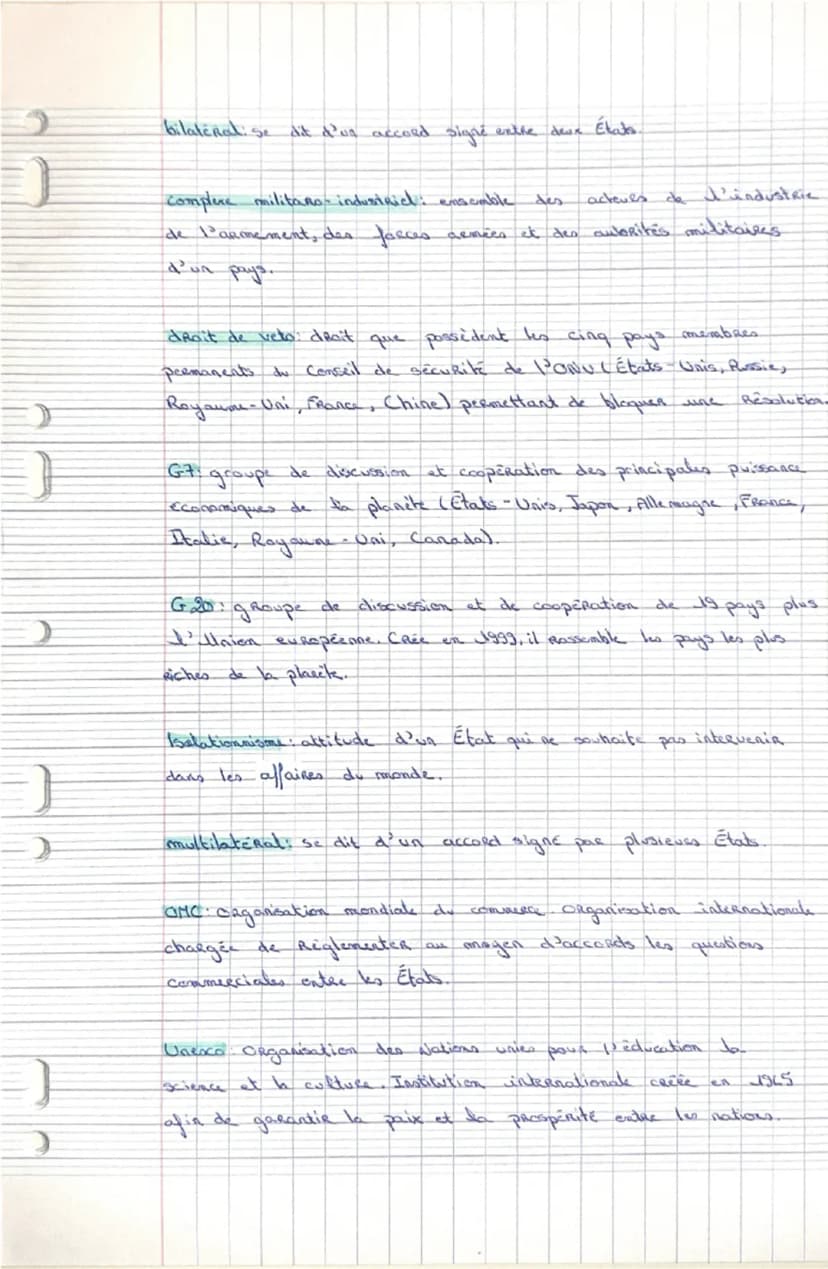 bilatéral: se dit d'un accord signé entre deux États.
complexe militaro-industriel: ensemble des acteurs de l'industrie
de l'armement, des forces armées et des autorités militaires
d'un pays.
droit de veto: droit que possèdent les cinq pays membres
permanents du Conseil de sécurité de l'ONU (États-Unis, Russie,
Royaume-Uni, France, Chine) permettant de bloquer une Résolution.
G7: groupe de discussion et coopération des principales puissance
économiques de la planète (États-Unis, Japon, Allemagne, France,
Italie, Royaume-Uni, Canada).
G20: groupe de discussion et de coopération de 19 pays plus
l'Union européenne. Crée en 1999, il rassemble les pays les plus
riches de la planète.
Isolationnisme: attitude d'un État qui ne souhaite pas intervenir
dans les affaires du monde.
multilatéral: se dit d'un accord signé par plusieurs États.
OMC: Organisation mondiale du commerce. Organisation internationale
chargée de Réglementer au moyen d'accords les questions
commerciales entre les États.
Unesco: Organisation des Nations unies pour l'éducation la
science et la culture. Institution internationale créée en 1945
afin de garantir la paix et la prospérité entre les nations.